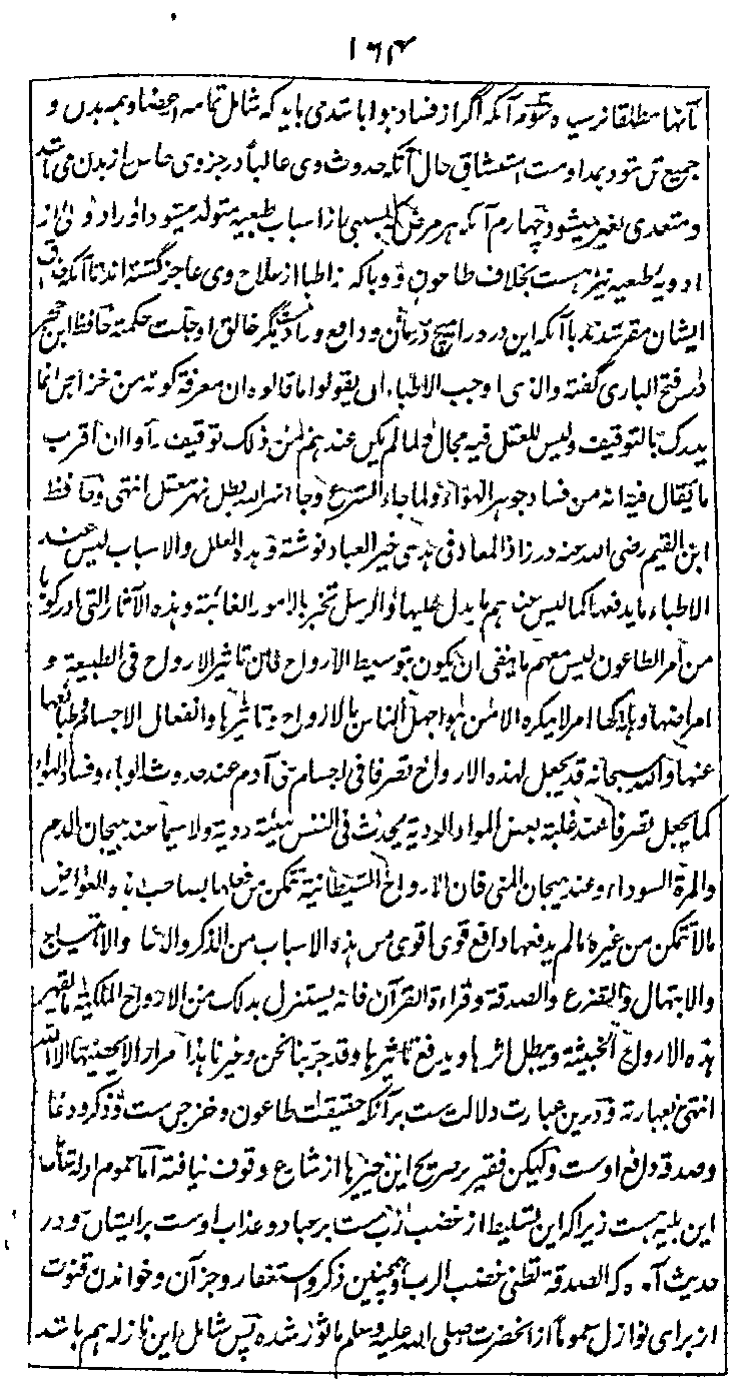 ۱۶۴
بآنها مطلقا نرسید و سوم آنکه اگر از فساد هوا باشدی باید که شامل تمامه اعضا و همه بدن و
جمیع تن شود بمداومت استنشاق حال آنکه حدوث وی غالباً در جزوی خاص از بدن می باشد
و متعدی بغیر نمیشود چهارم آنکه هر مرض که بسببی از اسباب طبعیه متولد میشود او را دوائی از
ادویه طبعیه نیز هست بخلاف طاعون و وبا که اطبا از علاج وی عاجز گشته اند تا آنکه حذاق
ایشان مقر شدند بآنکه این درد را هیچ درمان و دافع و رادی نیست مگر خالق او جلت حکمته حافظ ابن حجر
در فتح الباری گفته والذی اوجب الاطباء ان یقولوا ما قالوه ان معرفة کونه من وخز الجن انما
یدرک بالتوقیف ولیس للعقل فیه مجال ولما لم یکن عندهم من ذلک توقیف رأوا ان اقرب
ما یقال فیه انه من فساد جوهر الهواء ولما جاء الشرع وجاء نهر الله بطل نهر معقل انتهی و حافظ
ابن القیم رضی الله عنه در زاد المعاد فی هدی خیر العباد نوشته و هذه العلل والاسباب لیس عند
الاطباء ما یدفعها کما لیس عندهم ما یدل علیها والرسل تخبر بالامور الغائبة وهذه الآثار التی ادرکوها
من امر الطاعون لیس معهم ما ینفی ان یکون بتوسیط الارواح فان تاثیر الارواح فی الطبیعة و
امراضها وهلاکها امر لا ینکره الا من هو اجهل الناس بالارواح وتاثیرها وانفعال الاجسام وطبائعها
عنها والله سبحانه قد یجعل لهذه الارواح تصرفا فی اجسام بنی آدم عند حدوث الوباء وفساد الهواء
کما یجعل تصرفا عند غلبة بعض المواد الردیة یحدث فی النفس هیئة ردیة ولا سیما عند هیجان الدم
والمرة السوداء وعند هیجان المنی فان الارواح الشیطانیة تتمکن من فعلها بصاحب هذه العوارض
ما لا تتمکن من غیره ما لم یدفعها دافع قوی اقوی من هذه الاسباب من الذکر والدعا والابتهاج
والابتهال والتضرع والصدقة وقراءة القرآن فانه یستنزل بذلک من الارواح الملکیة ما یقهر
هذه الارواح الخبیثة ویبطل اثرها ویدفع تاثیرها وقد جربنا نحن وغیرنا هذا مرارا لا یحصیها الا الله
انتهی بعبارته و درین عبارت دلالت ست بر آنکه حقیقت طاعون وخز جن ست و ذکر و دعا
و صدقه دافع اوست ولیکن فقیر بر صریح این چیزها از شارع وقوف نیافته اما عموم ادله شامل
این بلیه هست زیرا که این تسلیط از غضب رب ست بر عباد و عذاب اوست بر ایشان و در
حدیث آمده که الصدقة تطفئ غضب الرب و همچنین ذکر و استغفار و جز آن و خواندن قنوت
از برای نوازل عموماً از آنحضرت صلی الله علیه وسلم ماثور شده پس شامل این نازله هم باشد